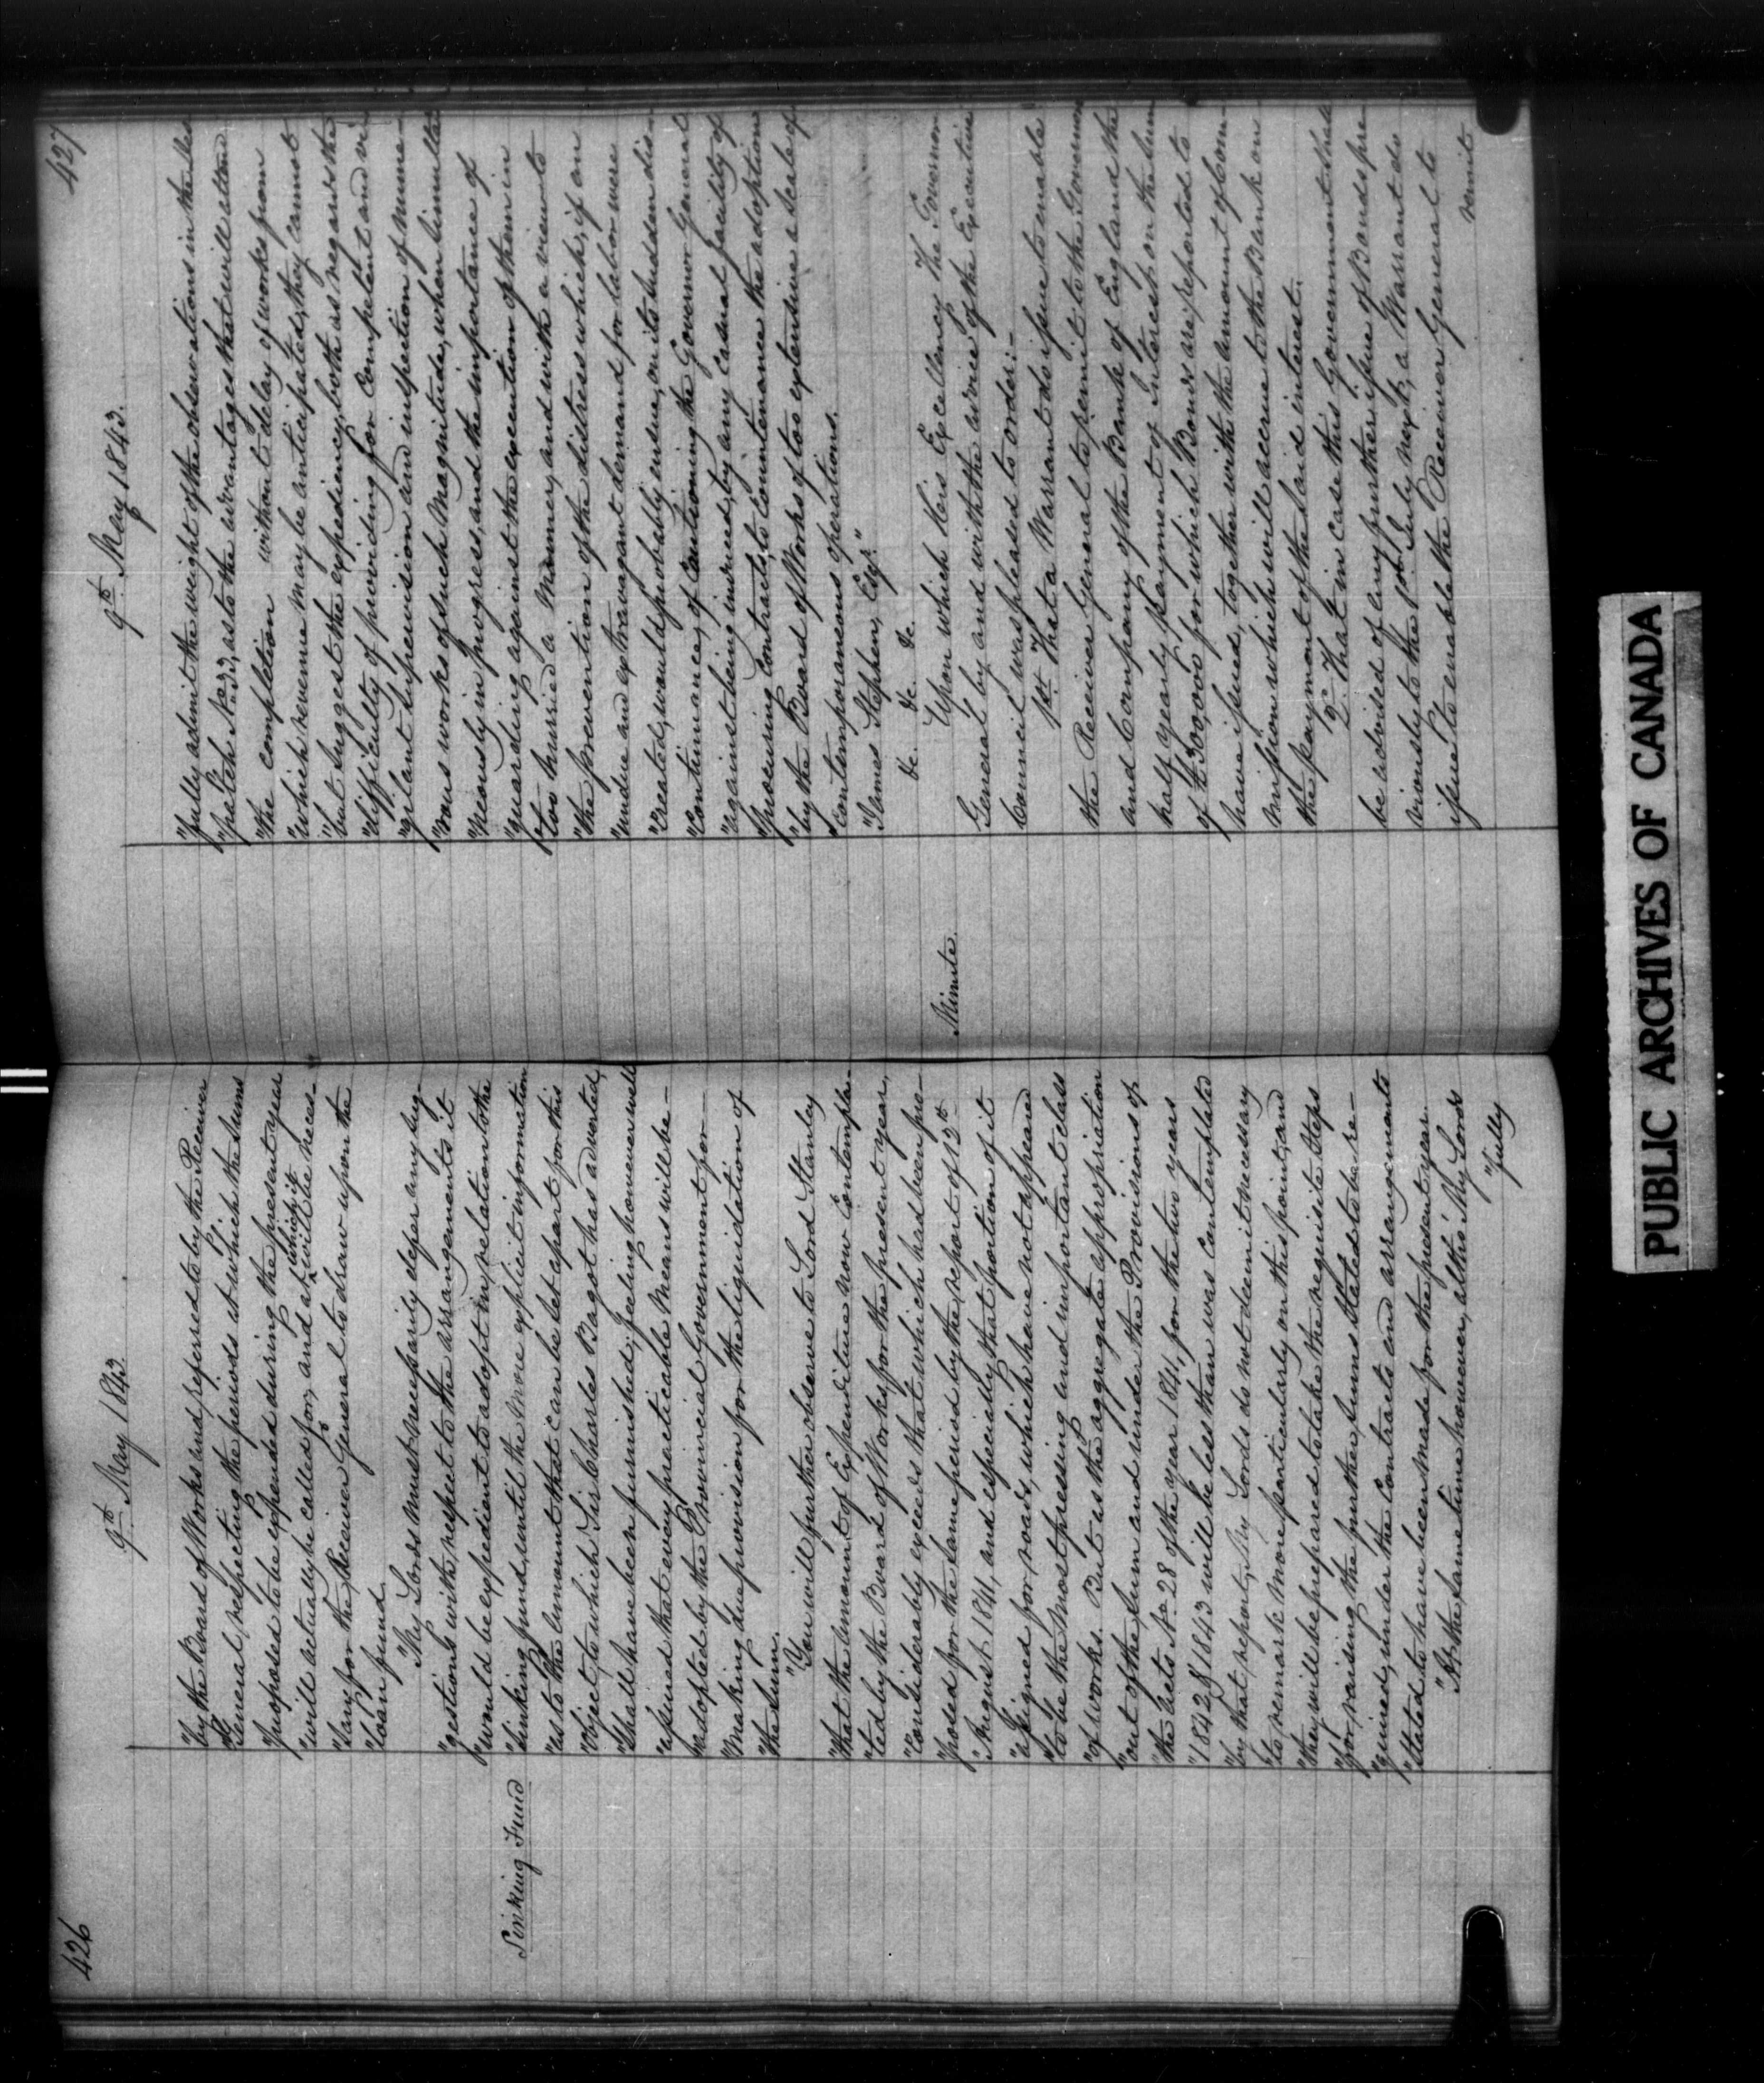 426
9th May 1843.
"by the Board of Works and referred to by the Receiver
"General, respecting the periods at which the sums
"proposed to be expended during the present year
"will actually be called for, and at which will be neces-
"sary for the Receiver General to draw upon the
"loan fund.
"My Lords must necessarily defer any sug-
"gestions with respect to the arrangements it
"would be expedient to adopt in relation to the
Sinking Fund
"sinking fund, until the more explicit information
"as to the amount that can be set apart for this
"object to which Sir Charles Bagot has adverted,
"shall have been furnished; feeling however well
"assured that every practicable means will be
"adopted by the Provincial Government for
"making due provision for the liquidation of
"the sum.
"You will further observe to Lord Stanley
"that the amount of Expenditure now Contempla-
"ted by the Board of Works for the present year,
"considerably exceeds that which had been pro-
"posed for the same period by the report of 12th
"August 1841, and especially that portion of it
"assigned for roads, which have not appeared
"to be the most pressing and important class
"of works. But as the aggregate appropriation
"out of the sum and under the Provisions of
"the Acts No 28 of the year 1841, for the two years
"1842 & 1843 will be less than was Contemplated
"by that report, My Lords do not deem it necessary
"to remark more particularly on this point, and
"they will be prepared to take the requisite steps
"for raising the further sums stated to be re-
"quired, under the Contracts and arrangements
"stated to have been made for the present year.
"At the same time however, altho' My Lords
"fully
427
9th May 1843.
"fully admit the weight of the observations in the
"patch No 232, as to the advantages that will
"the completion without delay of works from
"which revenue may be anticipated, they cannot
"but suggest the expediency, both as regards the
"difficulty of providing for Competent and vi-
"gilant supervision and inspection of nume-
"rous works of such magnitude, when simulta-
"neously in progress, and the importance of
"guarding against the execution of them in
"too hurried a manner, and with a view to
"the prevention of the distress which, if an
"undue and extravagant demand for labor were
"created, would probably ensue, on its sudden dis-
"continuance, of Cautioning the Governor General
"against being induced, by any Casual facility of
"procuring Contracts, to Countenance the adoption
"by the Board of Works of too extensive a scale of
"contemporaneous operations.
"James Stephen, Esqr."
&c. &c. &c.
Minute.
Upon which His Excellency The Governor
General by and with the advice of the Executive
Council was pleased to order:-
1st. That a Warrant do issue to enable
the Receiver General to remit to the Governor
and Company of the Bank of England the
half yearly payment of Interest on the sum
of £300,000 for which Bonds are reported to
have issued, together with the amount of Com-
mission which will accrue to the Bank on
the payment of the said interest.
2d. That in case this Government shall
be advised of any further issue of Bonds pre-
viously to the 1st July next, a Warrant do
issue to enable the Receiver General to
remit
PUBLIC ARCHIVES OF CANADA